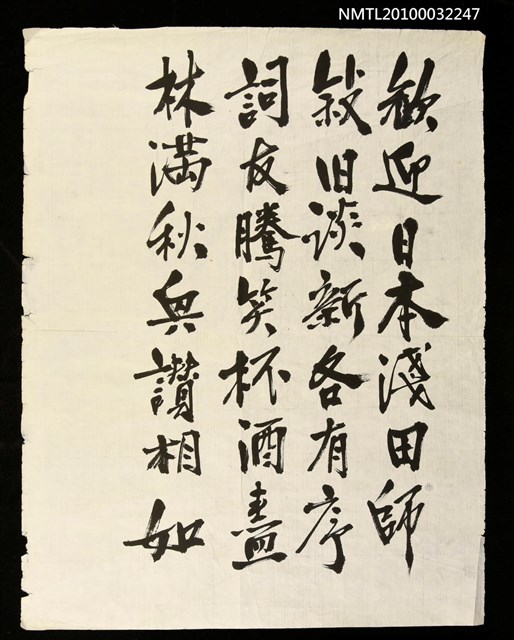 NMTL20100032247
歓迎日本淺田師
敍旧談新各有序
詞友騰笑杯酒盡
林満秋與讃相如